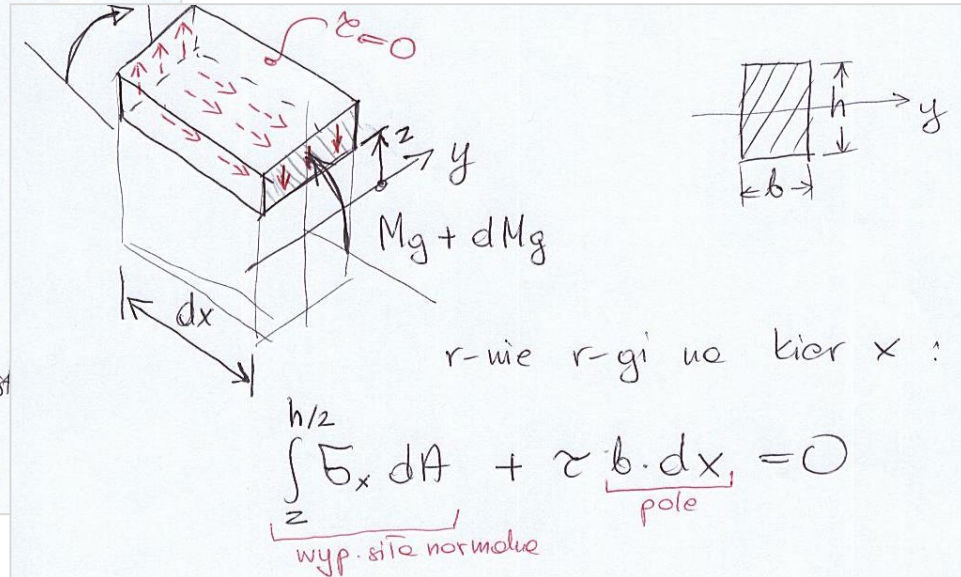 τ=0
z
y
Mg + dMg
dx
h
y
b
r-nie r-gi na kier x :
h/2
∫ σx dA + τ b·dx = 0
z
pole
wyp. siła normalna